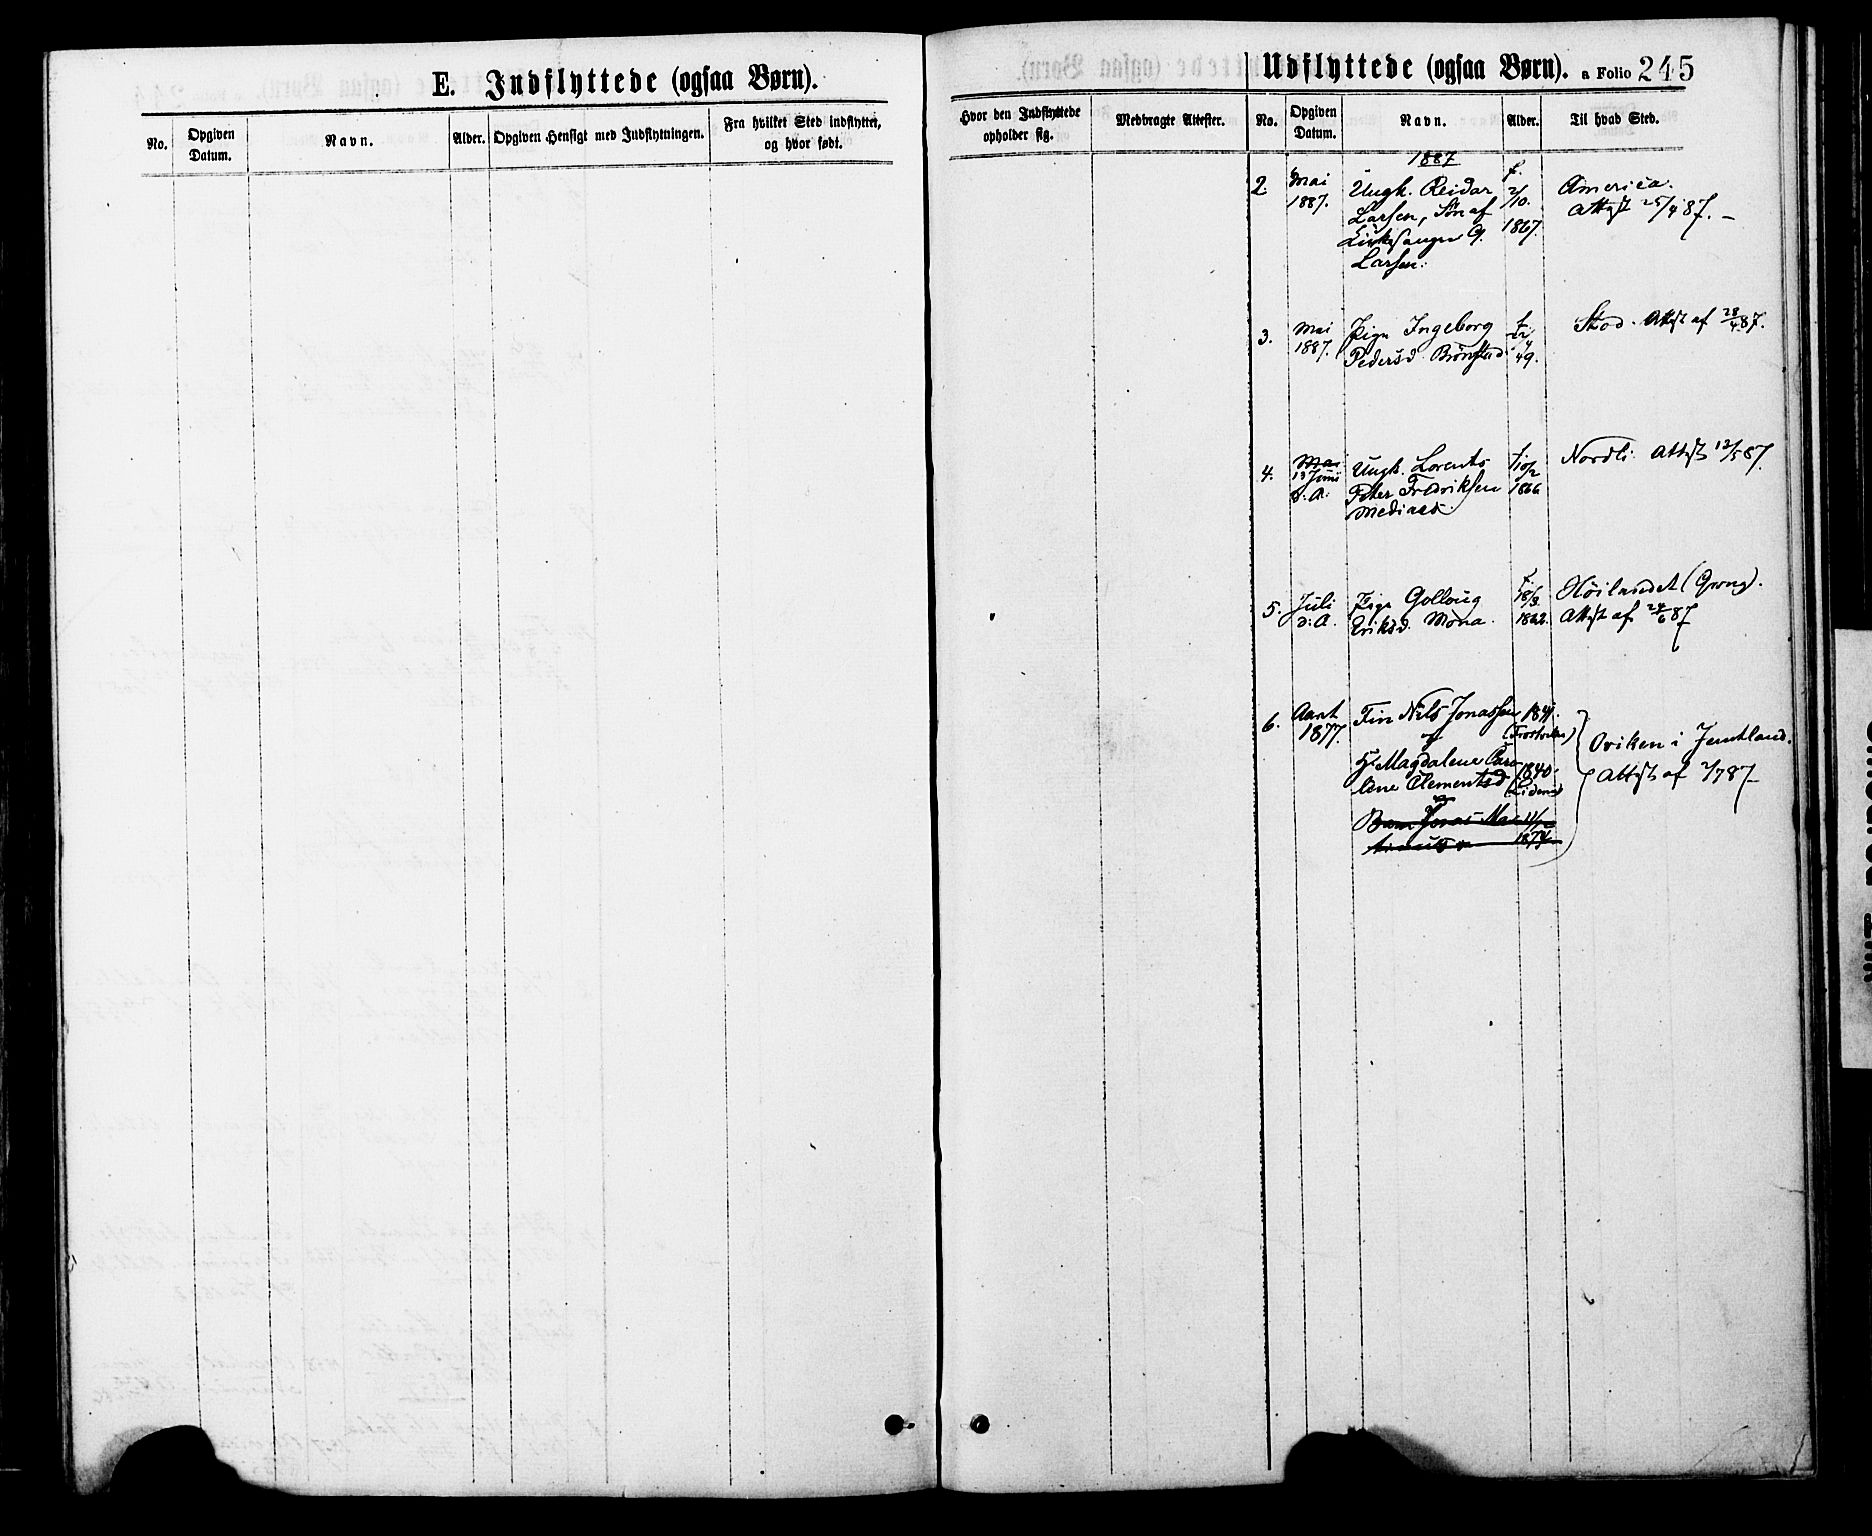 E. Indflyttede (ogsaa Børn).
No.
Opgiven Datum.
Navn.
Alder.
Opgiven Hensigt med Indflytningen.
Fra hvilket Sted indflyttet,
og hvor født.
Udflyttede (ogsaa Børn). a Folio 245
Hvor den Indflyttede
opholder sig.
Medbragte Attester.
No.
Opgiven Datum.
Navn.
Alder.
Til hvad Sted.
1887
2. Mai Ungk. Reidar f. 2/10. America.
1887. Larsen, Søn af 1867. Attest 25/4 87. –
Kirkesanger G.
Larsen.
3. Mai Pige Ingeborg f. Stod. Attest af 28/4 87.
1887. Pedersd. 49.
4. Mai Ungk. Lorents f. 10/2 Nordli. Attest 12/5 87.
13 Juni Peter Fredriksen 1866
d. A. Medinæs.
5. Juli Pige Gollaug f. 18/3 Høilandet (Grong).
d. A. Eriksd. Mona. 1862. Attest af 24/6 87
6. Aaret Fin Nils Jonassen 1841.
1877. og (Frostviken) Oviken i Jemtland.
H. Magdalena Caro- 1840. Attest af 2/7 87
lina Clementsd.
og
Barn Jonas Mar-
1874